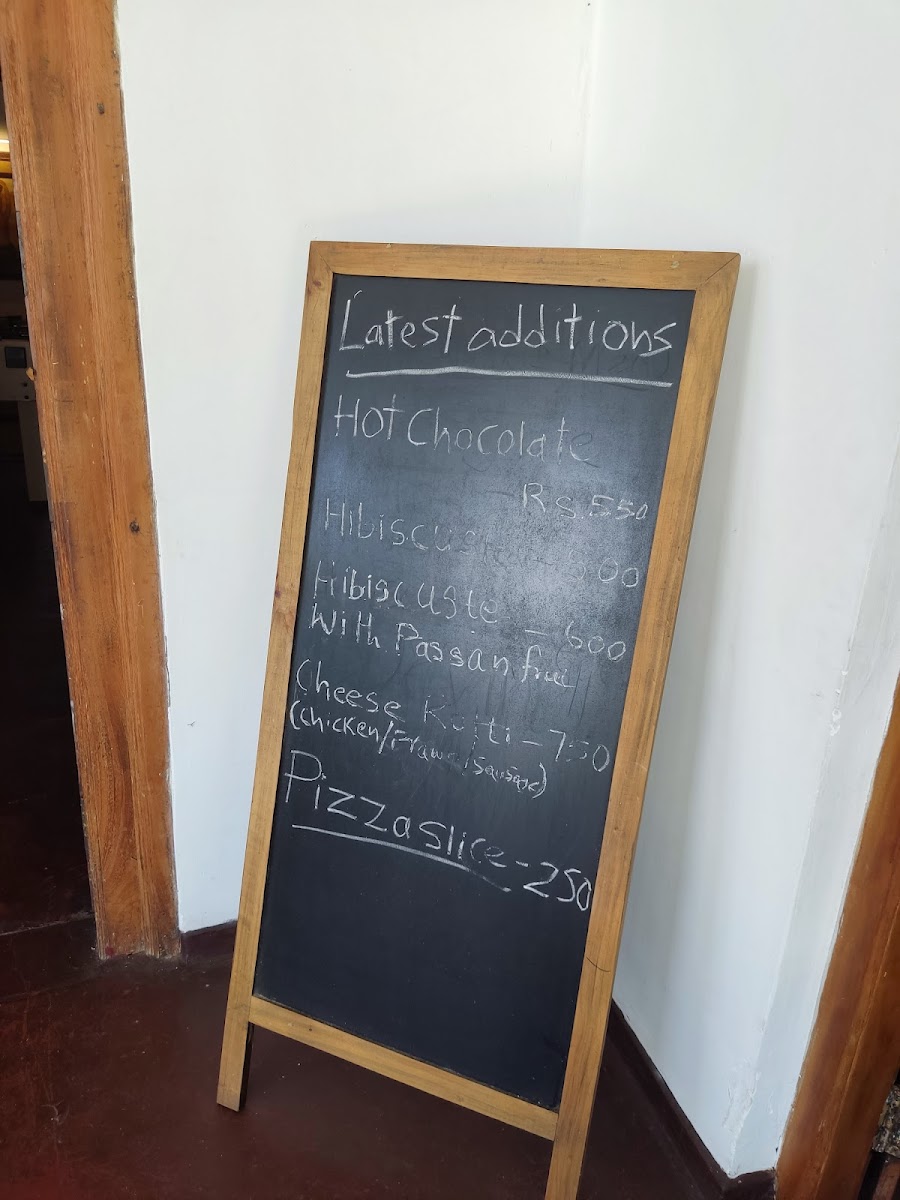 Latest additions
Hot Chocolate
Rs. 550
Hibiscus - 500
Hibiscuste - 600
With Passan fruit
Cheese Kotti - 750
(Chicken/Prawn/Sausage)
Pizza Slice - 250